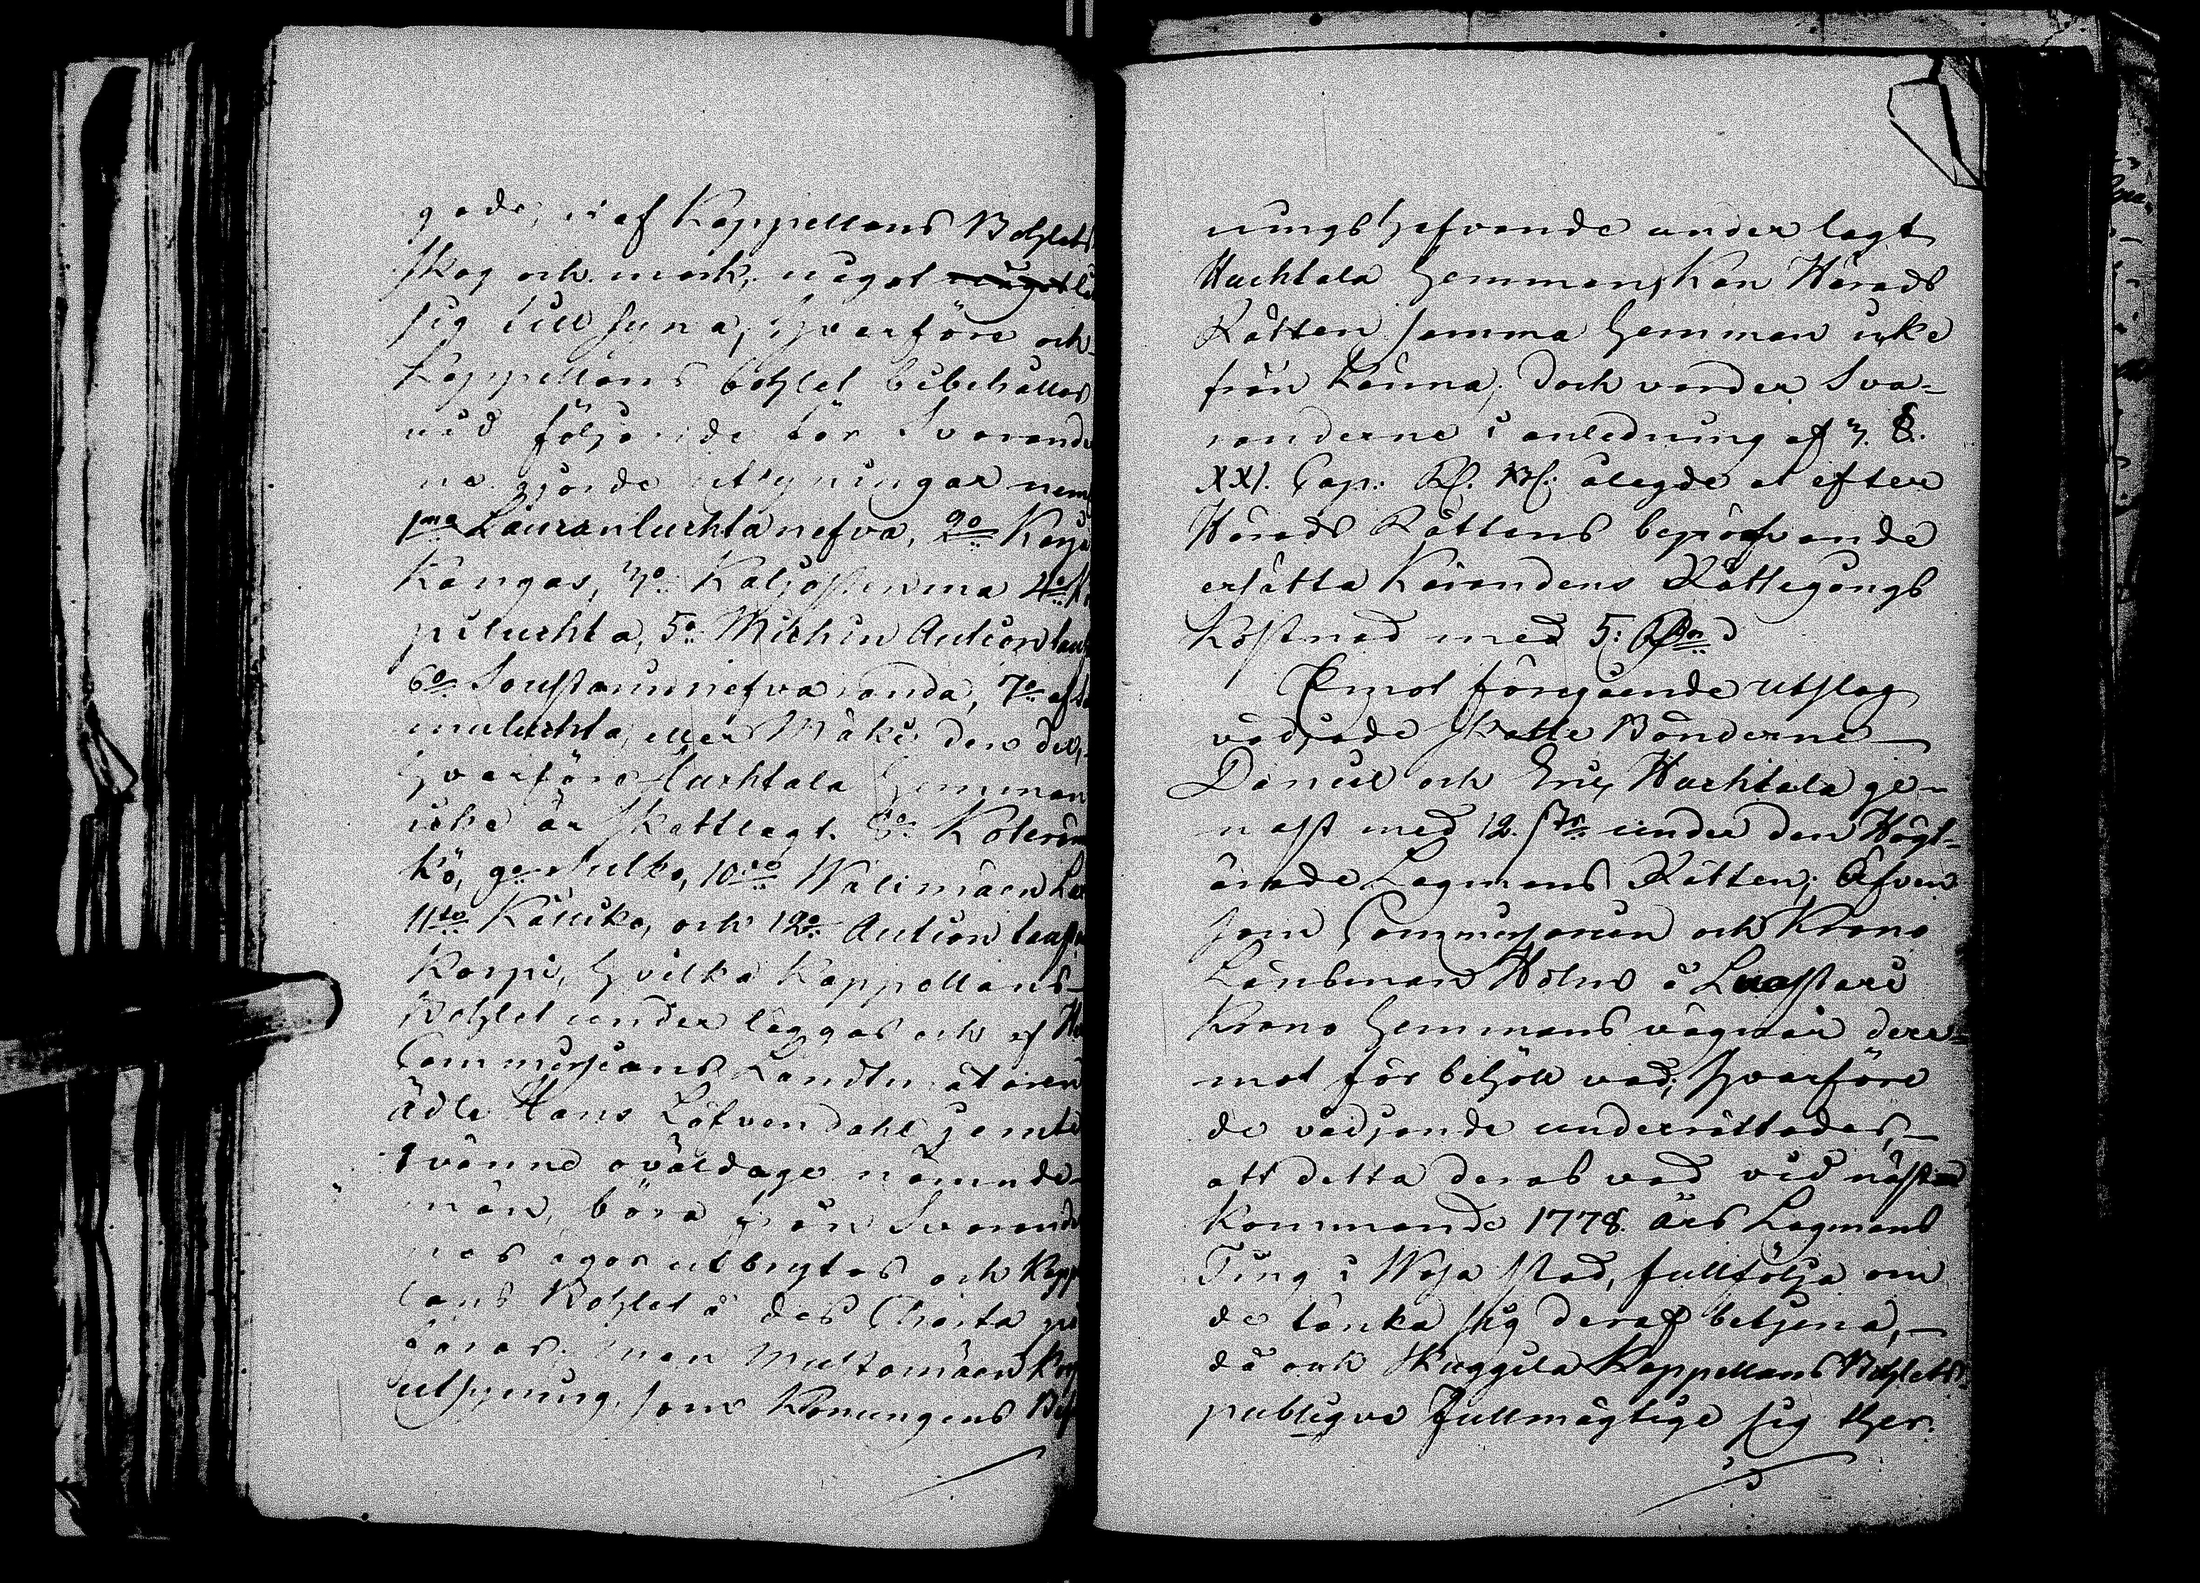 af Kappellans Bohlets
skog och mark, något något
sig till syna, hvarföre och
Kappellans bohlet bibehålles
vid följande för Svarande
ne gjorde utsyningar neml
1mo Lauranluchtanefva, 2o Karja
Kangas, 3o Kaljossenma 4o
piluchta, 5o Michin Aution
6o nefvaranda, 7o
muluchta, eller Mäki den del,
hvarföre Huchtala Hemman
icke är skattlagt. 8o
kö, 9o Sulko, 10mo Wälimäen
11to Källiko, och 12o Aution
Korpi, hvilka Kappellans
Bohlet under läggas och af
Commissions Landtm
ädle Hans Löfvendahl jemte
tvänne oväldage nämnde-
män, böra från Svarande
nes ägor utbrytas och Kapp
lans Bohlet å des Charta på
föras; men Multamäen
utsyning, som Konungens Bef
ningshafvande under lagt
Huchtala Hemman, kan Härads
Rätten samma Hemman icke
från känna; dock varder Sva-
randerne i anledning af 3. §.
XXI. Cap: R. B: ålagde at efter
Härads Rättens bepröfvande
ersätta Kärandens Rättegångs
kostnad med 5: Rdr
Emot föregående utslag
vädjade Skatte Bönderne
Daniel och Eric Huchtala ge-
nast med 12. under den Högt-
ärade Lagmans Rätten; Äfven
som Commissarien och Krono
Länsman Holm å
Krono Hemmans vägnar dere-
mot för behöll vad; hvarföre
de vädjande underrättades,
att detta deras vad vid nästa
kommande 1778. års Lagmans
Ting i Wasa stad, fullfölja om
de tänka sig deraf betjena,
då ock Kappellans Bohlets
publique Fullmägtige sig ther